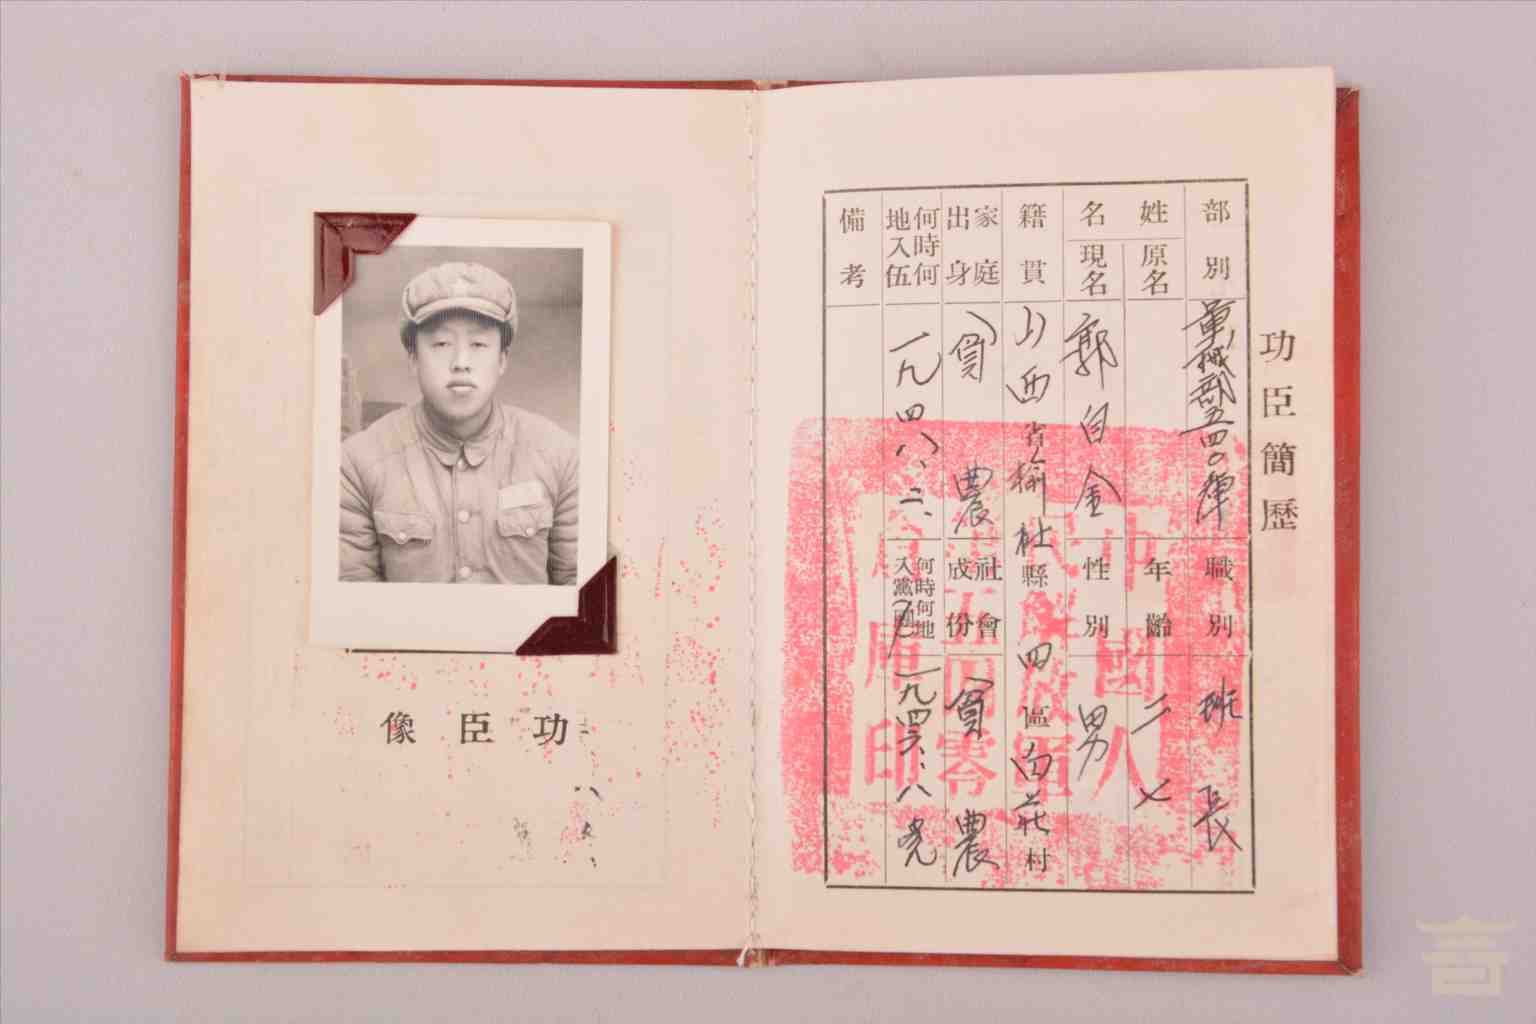 功臣像
功臣簡歷
部別
五四〇
職別
班長
姓名
原名
年齡
二七
現名
郭自金
性別
男
籍貫
山西省榆社縣四區白莊村
家庭出身
貧農
社會成份
貧農
何時何地入伍
一九四八、二、
何時何地入黨團
一九四六、八
備考
中國人
民解放軍
五四零
印